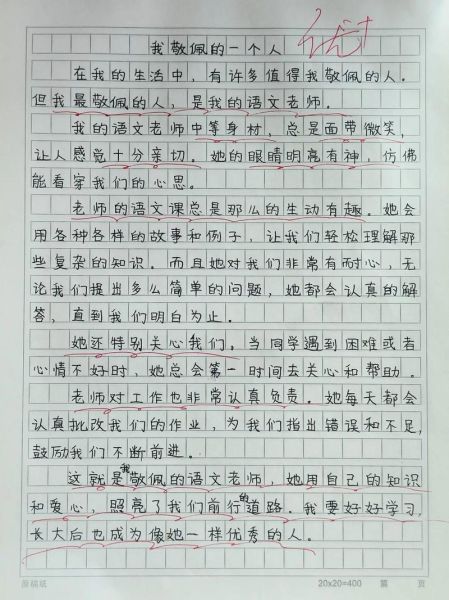 我敬佩的一个人
优+
在我的生活中，有许多值得我敬佩的人。
但我最敬佩的人，是我的语文老师。
我的语文老师中等身材，总是面带微笑，
让人感觉十分亲切。她的眼睛明亮有神，仿佛
能看穿我们的心思。
老师的语文课总是那么的生动有趣。她会
用各种各样的故事和例子，让我们轻松理解那
些复杂的知识。而且她对我们非常有耐心，无
论我们提出多么简单的问题，她都会认真的解
答，直到我们明白为止。
她还特别关心我们。当同学遇到困难或者
心情不好时，她总会第一时间去关心和帮助。
老师对工作也非常认真负责。她每天都会
认真批改我们的作业，为我们指出错误和不足，
鼓励我们不断前进。
这就是我敬佩的语文老师，她用自己的知识
和爱心，照亮了我们前行的道路。我要好好学习，
长大后也成为像她一样优秀的人。
原稿纸 20x20=400 第 页